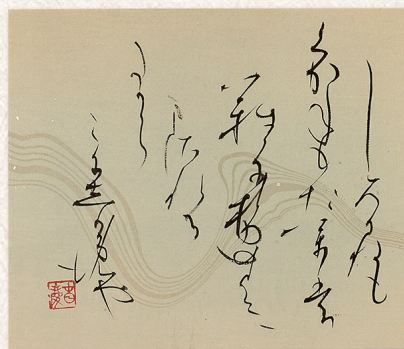 しろかねも
くかねもたまも
なにせむにま
される
たから
こにしかめや
も